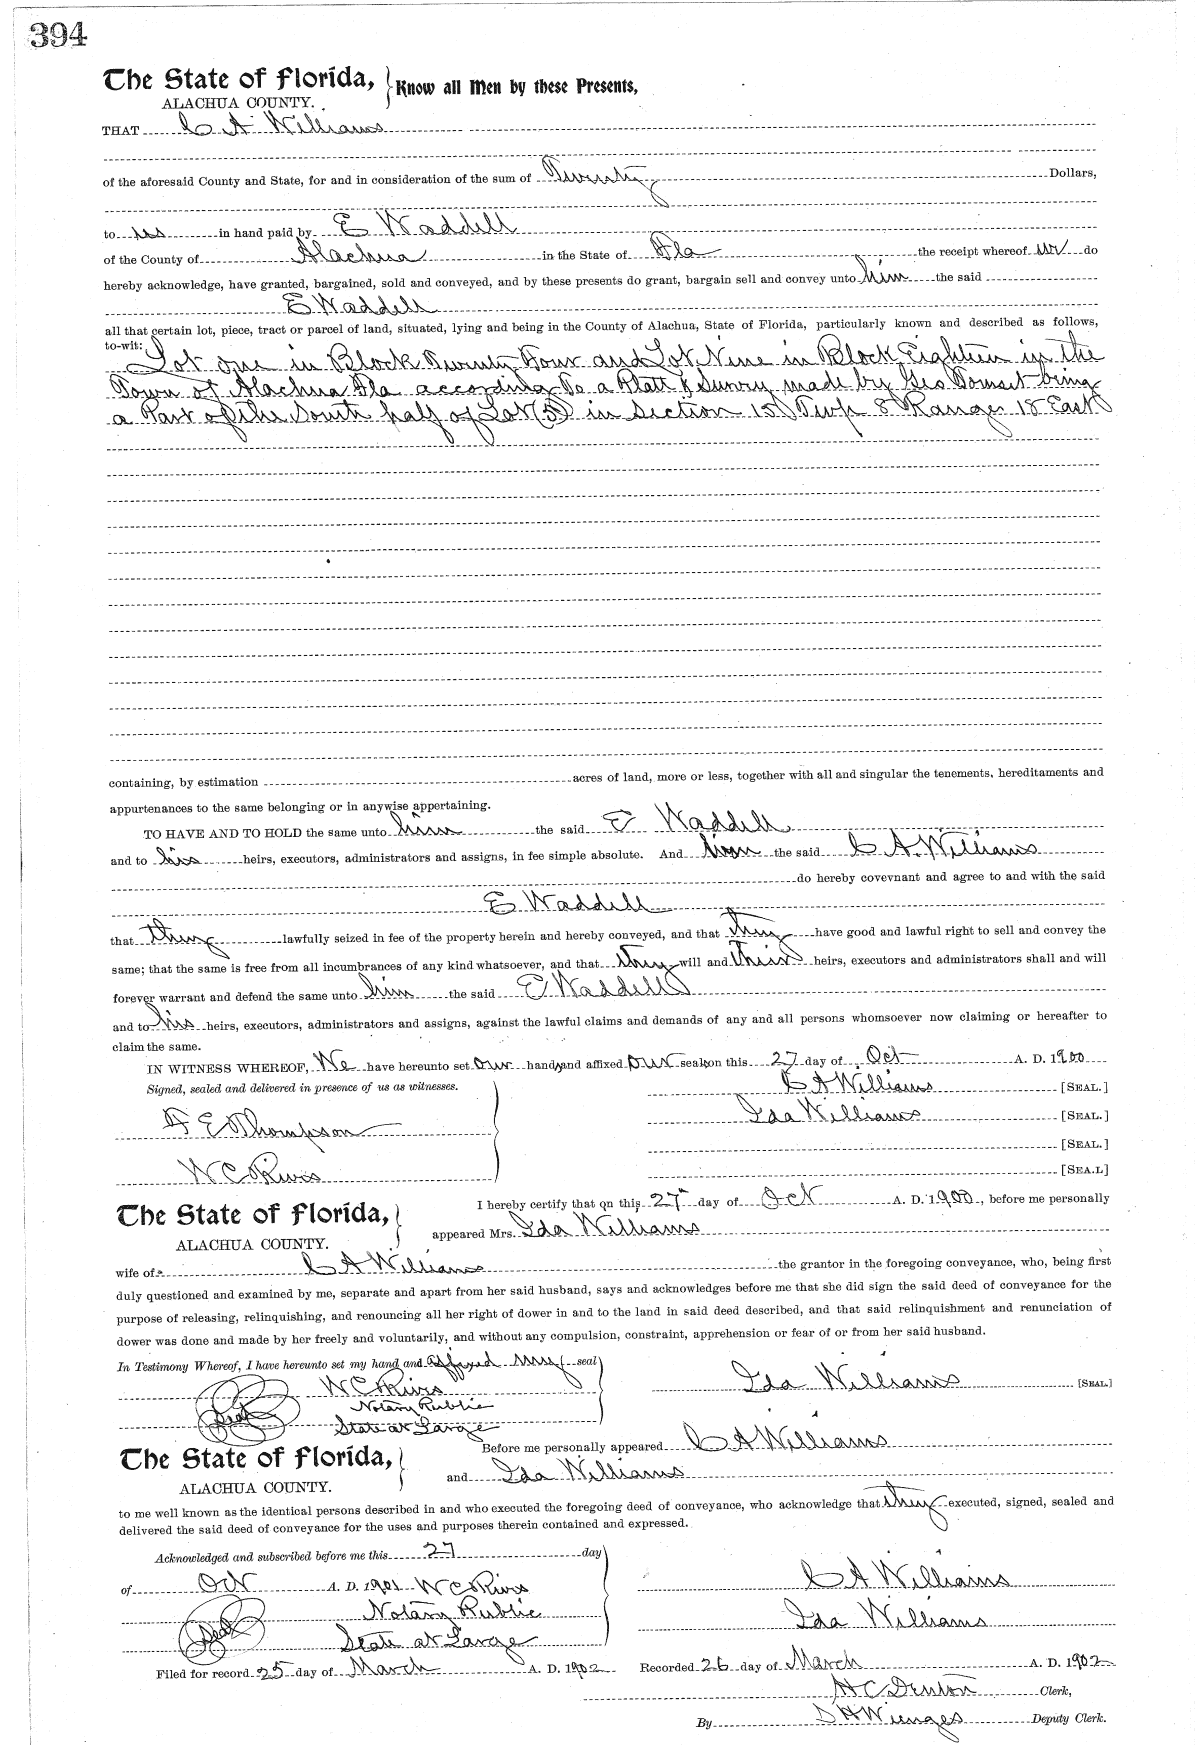 394
The State of Florida, Know all Men by these Presents,
ALACHUA COUNTY.
THAT C A Williams
of the aforesaid County and State, for and in consideration of the sum of Twenty Dollars,
to us in hand paid by E Waddell
of the County of Alachua in the State of Fla the receipt whereof we do
hereby acknowledge, have granted, bargained, sold and conveyed, and by these presents do grant, bargain sell and convey unto him the said
E Waddell
all that certain lot, piece, tract or parcel of land, situated, lying and being in the County of Alachua, State of Florida, particularly known and described as follows,
to-wit: Lot one in Block Twenty Four and Lot Nine in Block Eighteen in the
Town of Alachua Fla according to a Platt & Survey made by Geo Tomset being
a Part of the South half of Lot (5) in Section 15 Twp 8 Range 18 East
containing, by estimation acres of land, more or less, together with all and singular the tenements, hereditaments and
appurtenances to the same belonging or in anywise appertaining.
TO HAVE AND TO HOLD the same unto him the said E Waddell
and to his heirs, executors, administrators and assigns, in fee simple absolute. And the said C A. Williams
do hereby covevnant and agree to and with the said
E Waddell
that they lawfully seized in fee of the property herein and hereby conveyed, and that they have good and lawful right to sell and convey the
same; that the same is free from all incumbrances of any kind whatsoever, and that they will and their heirs, executors and administrators shall and will
forever warrant and defend the same unto him the said E Waddell
and to his heirs, executors, administrators and assigns, against the lawful claims and demands of any and all persons whomsoever now claiming or hereafter to
claim the same.
IN WITNESS WHEREOF, We have hereunto set our hands and affixed our seals on this 27 day of Oct A. D. 1900
Signed, sealed and delivered in presence of us as witnesses. C A Williams [SEAL.]
Ida Williams [SEAL.]
F E Thompson [SEAL.]
W C Rivis [SEA.L]
The State of Florida, I hereby certify that on this 27 day of Oct A. D. 1900, before me personally
ALACHUA COUNTY. appeared Mrs. Ida Williams
wife of C A Williams the grantor in the foregoing conveyance, who, being first
duly questioned and examined by me, separate and apart from her said husband, says and acknowledges before me that she did sign the said deed of conveyance for the
purpose of releasing, relinquishing, and renouncing all her right of dower in and to the land in said deed described, and that said relinquishment and renunciation of
dower was done and made by her freely and voluntarily, and without any compulsion, constraint, apprehension or fear of or from her said husband.
In Testimony Whereof, I have hereunto set my hand and affixed my seal
W C Rivis Ida Williams [SEAL]
Notary Public
Seal State at Large
The State of Florida, Before me personally appeared C A Williams
ALACHUA COUNTY. and Ida Williams
to me well known as the identical persons described in and who executed the foregoing deed of conveyance, who acknowledge that they executed, signed, sealed and
delivered the said deed of conveyance for the uses and purposes therein contained and expressed.
Acknowledged and subscribed before me this 27 day
of Oct A. D. 1901 W C Rivis C A Williams
Notary Public Ida Williams
Seal State at Large
Filed for record 25 day of March A. D. 1902 Recorded 26 day of March A. D. 1902
H C Denton Clerk,
By D H Wienges Deputy Clerk.